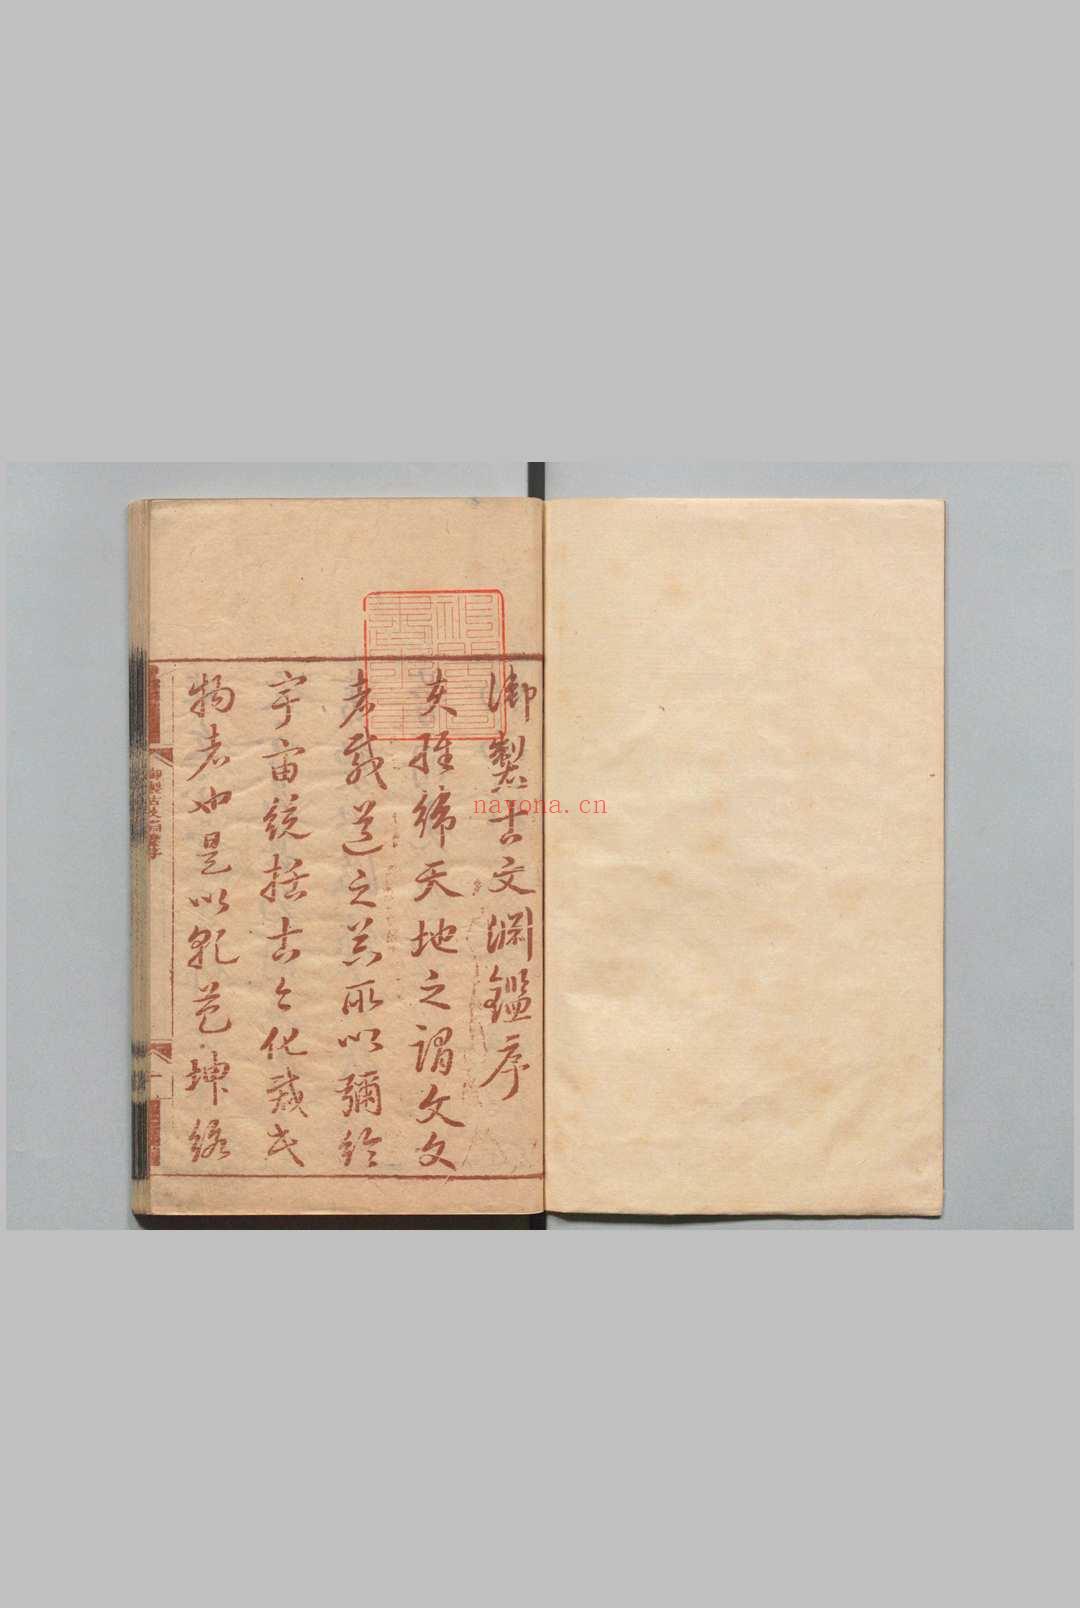 御製古文淵鑑序
夫經緯天地之謂文文
者載道之器所以彌綸
宇宙統括古今化裁民
物者也是以乾苞坤絡
御製古文淵鑒序
一
nayona.cn